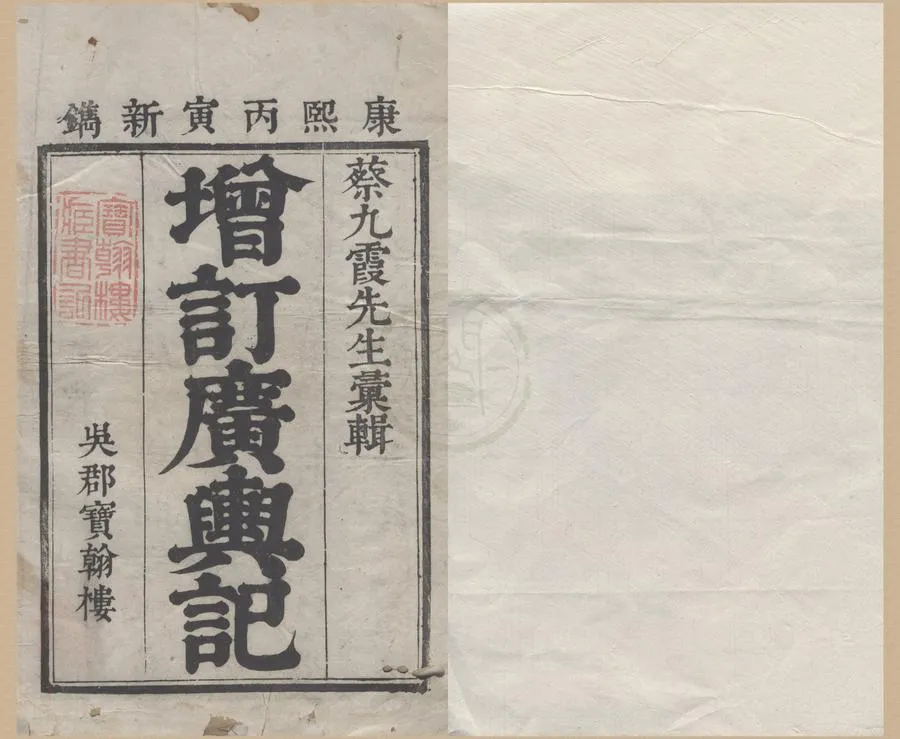 康熙丙寅新鐫
蔡九霞先生彙輯
增訂廣輿記
吳郡寶翰樓
寶翰樓